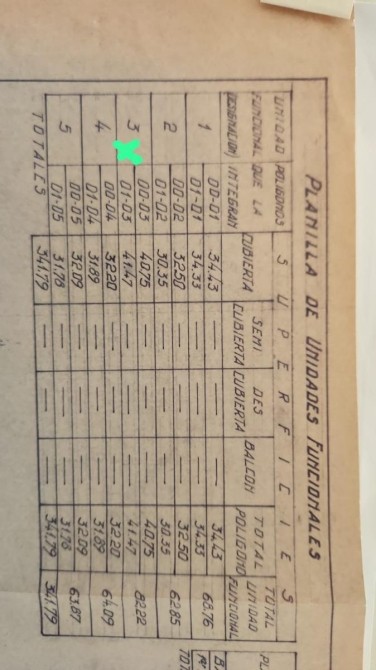 PLANILLA DE UNIDADES FUNCIONALES
UNIDAD FUNCIONAL (DESIGNACION) POLIGONOS QUE LA INTEGRAN SUPERFICIES
CUBIERTA SEMI CUBIERTA DES CUBIERTA BALCON TOTAL POLIGONO TOTAL UNIDAD FUNCIONAL
1 00-01 34.43 — — — 34.43 68.76
01-01 34.33 — — — 34.33
2 00-02 32.50 — — — 32.50 62.85
01-02 30.35 — — — 30.35
3 00-03 40.75 — — — 40.75 82.22
01-03 41.47 — — — 41.47
4 00-04 32.20 — — — 32.20 64.09
01-04 31.89 — — — 31.89
5 00-05 32.09 — — — 32.09 63.87
01-05 31.78 — — — 31.78
TOTALES 341.79 — — — 341.79 341.79